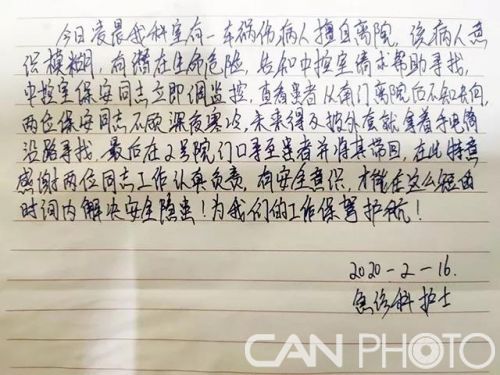 今日凌晨我科室有一车祸伤病人擅自离院，该病人意
识模糊，有潜在生命危险，告知中控室请求帮助寻找，
中控室保安同志立即调监控，查看患者从南门离院后不知去向，
两位保安同志不顾深夜寒冷，未来得及披外套就拿着手电筒
沿路寻找，最后在2号院门口寻至患者并将其带回，在此特意
感谢两位同志工作认真负责，有安全意识，才能在这么短的
时间内解决安全隐患！为我们的工作保驾护航！
2020-2-16.
急诊科护士
CAN PHOTO